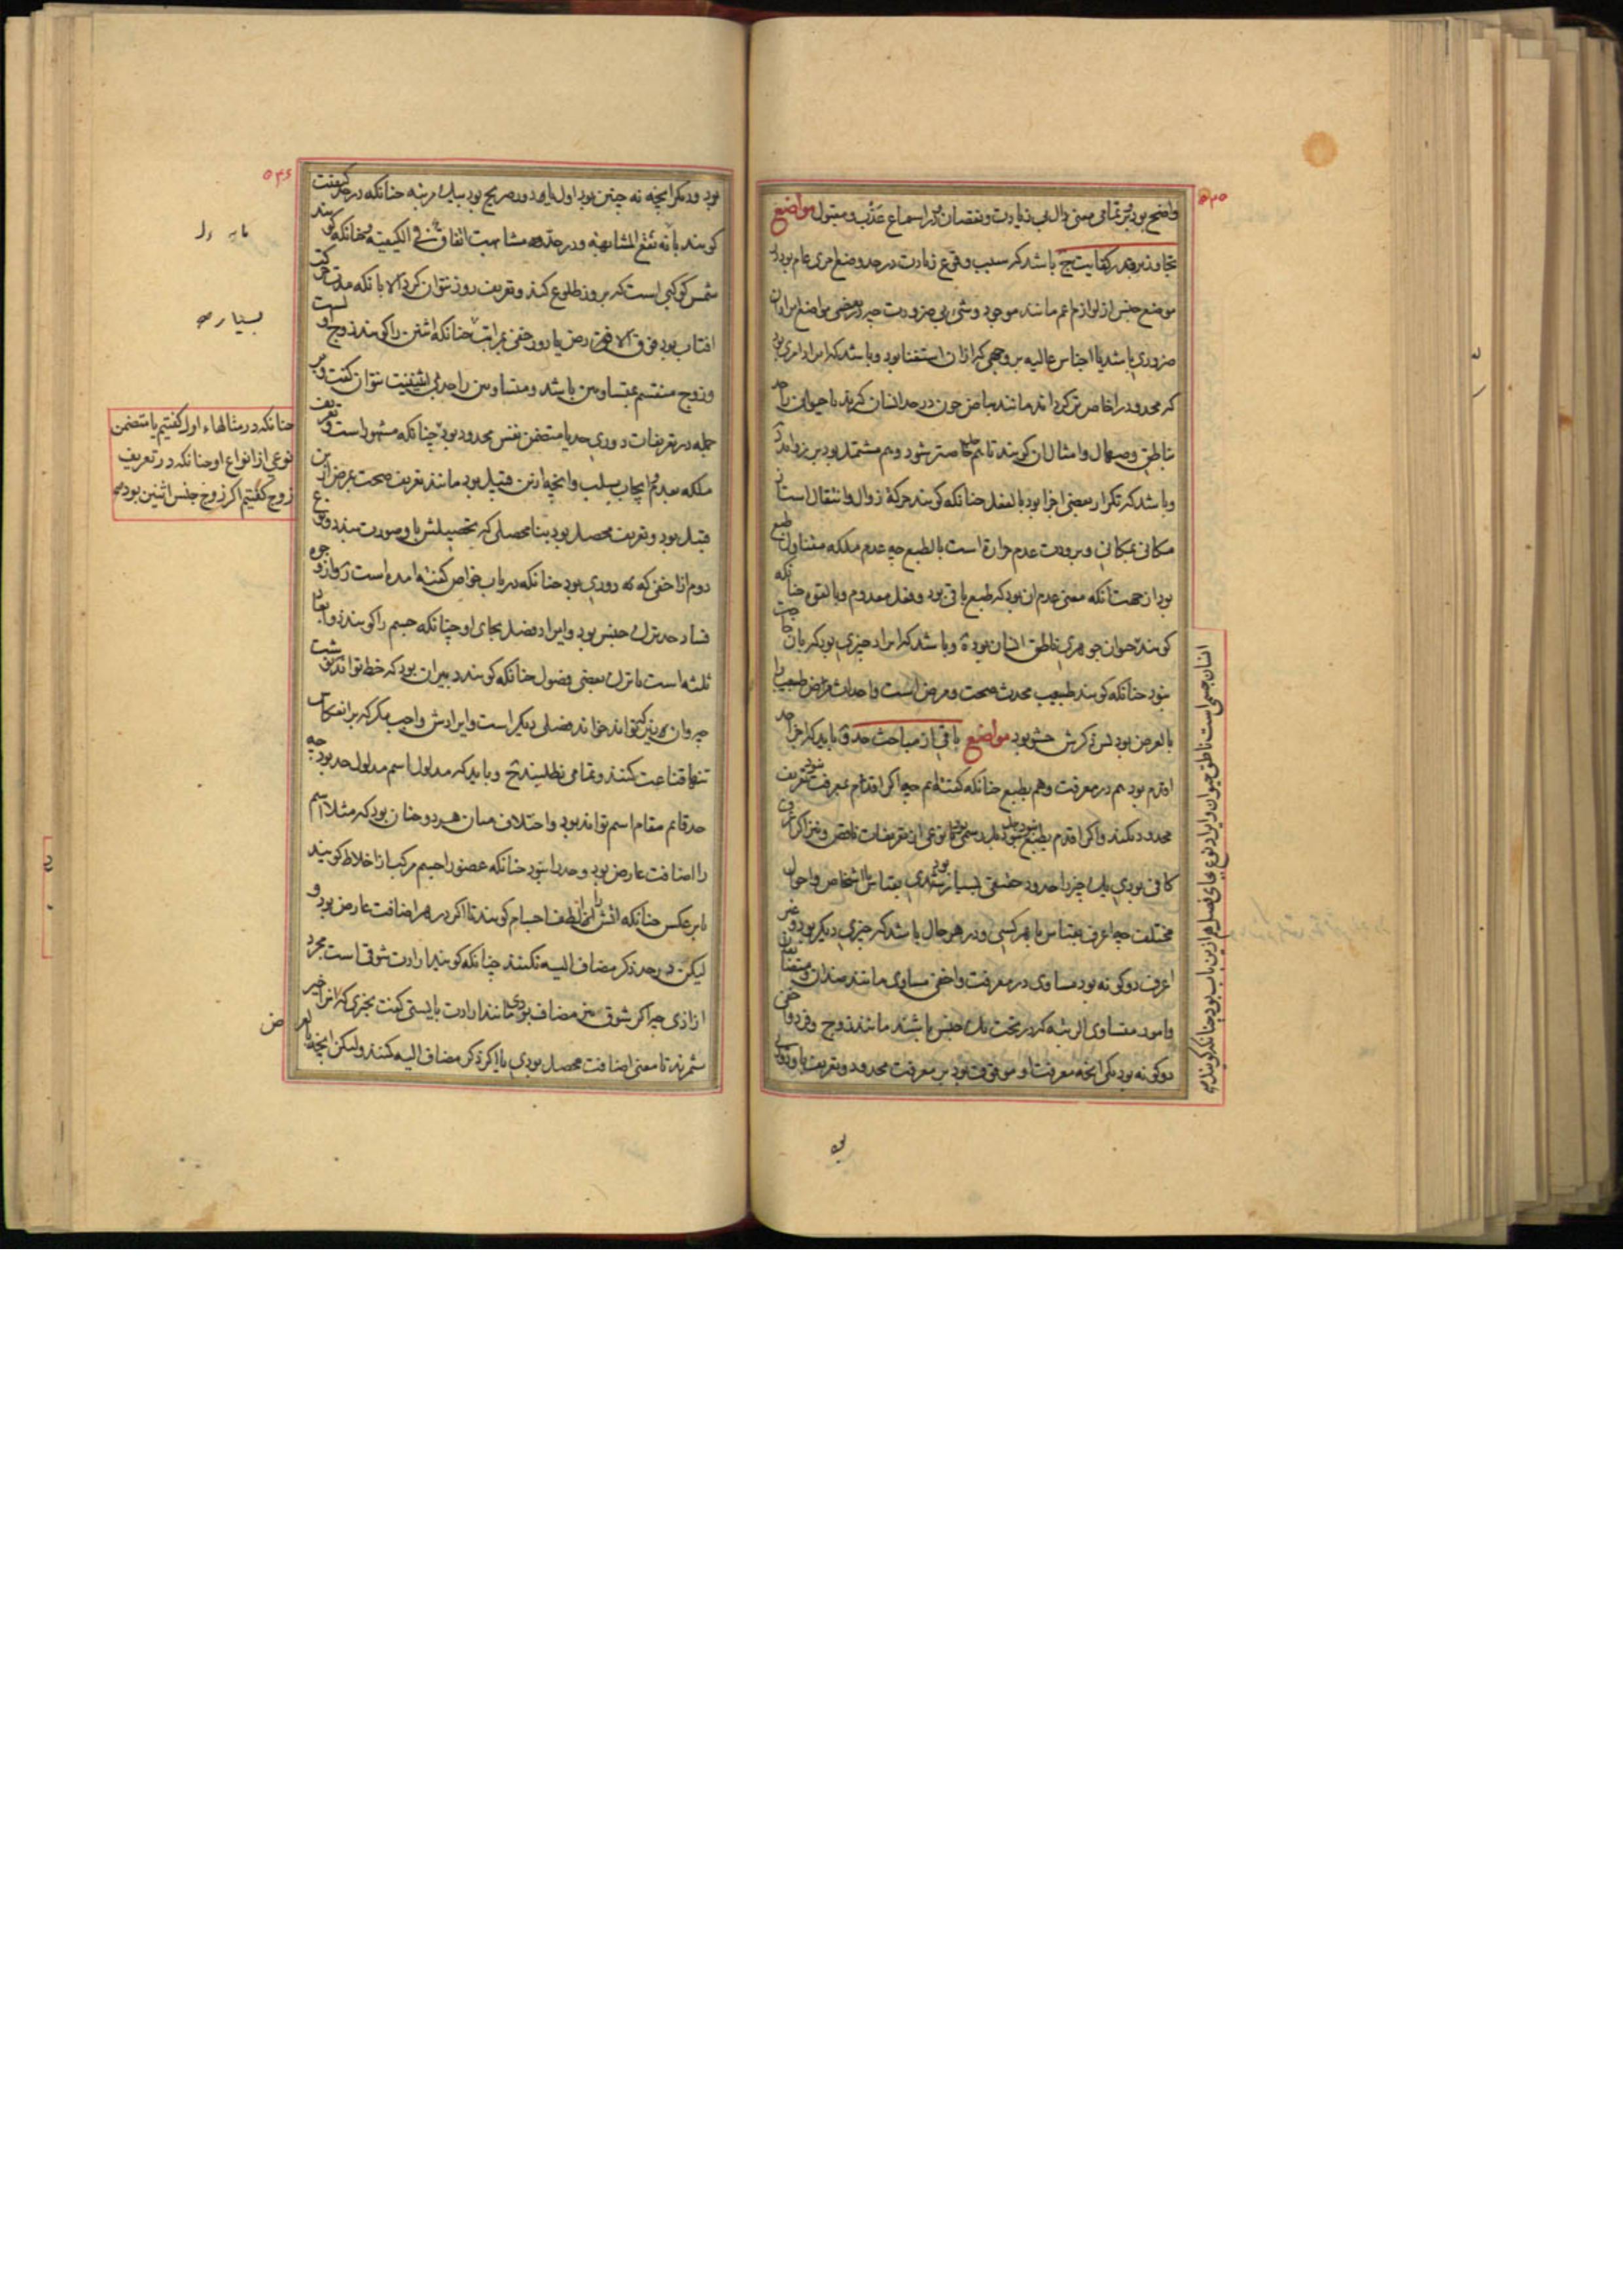 واضح بود بر تمامی معنی دال بی زیادت و نقصان و در اسماع عذب و مقبول مواضع
باشد که سبب وقوع زیادت در حد وضع امری عام بود در
موضع جنس از لوازم اعم مانند موجود و شیء بی ضرورت چه در بعضی مواضع ایراد آن
ضروری باشد یا اجناس عالیه بر وجهی که ازان استغنا بود و باشد که ایراد امری بود
که محدود را خاص تر گرداند مانند بیاض چون در حد انسان گویند یا حیوان را حد
بناطق و صهال و امثال آن گویند تا هم خاصتر شود و هم مشتمل بود بر زواید
و باشد که تکرار بعضی اجزا بود بالفعل چنانکه گویند حرکة زوال و انتقال است از
مکانی بمکانی و برودت عدم حرارة است بالطبع چه عدم ملکه متناول طبع
بود از جهت آنکه معنی عدم آن بود که طبع باقی بود و فعل معدوم و یا بقوه چنانکه
گویند حیوان جوهری ناطق انسان بود و باشد که ایراد چیزی بود که بآن حاجت
نبود چنانکه گویند طبیب محدث صحت و مرض است و احداث مرض طبیب را
بالعرض بود پس ذکرش حشو بود مواضع باقی از مباحث حد باید که اجزا حد
اقدم بود هم در معرفت و هم بطبع چنانکه گفته‌ایم چه اگر اقدم بمعرفت نبود تعریف
محدود نکند و اگر اقدم بطبع نبود حد نبود بلکه رسمی بود یا نوعی از تعریفات ناقص و نیز اگر اعرف
کافی بودی یک چیز را حدود حقیقی بسیار بودی بقیاس با اشخاص و احوال
مختلف چه اعرف بقیاس با هر کسی و در هر حال باشد که چیزی دیگر بود و غیر
اعرف دو گونه بود مساوی در معرفت و اخفی مساوی مانند ضدان و متضایفان
و امور متساوی الرتبه که در تحت یک جنس باشند مانند زوج و فرد و اخفی
دو گونه بود یکی آنچه معرفت او موقوف بود بر معرفت محدود و تعریف باو دوری
انسان جسمی است ناطق حیوان و ایراد نوع بجای فصل هم ازین باب بود چنانکه گویند
بود و دیگر آنچه نه چنین بود اول یا دور صریح بود بیک مرتبه چنانکه در حد کیفیت
گویند بآنه تقع المشابهة و در حد مشابهت اتفاق فی الکیفیة و چنانکه گویند
شمس کوکبی است که بروز طلوع کند و تعریف روز نتوان کرد الا بآنکه مدت حرکت
افتاب بود فوق الارض یا دور خفی بمراتب چنانکه اثنین را گویند زوج اول است
و زوج منقسم بمتساویین باشد و متساویین را حد بی اثنینیت نتوان گفت و بر
جمله در تعریفات دوری حد یا متضمن نفس محدود بود چنانکه مشهور است و تعریف
ملکه بعدم و ایجاب بسلب و آنچه ازین قبیل بود مانند تعریف صحت بمرض ازین
قبیل بود و تعریف محصل بود بنامحصلی که تحصیلش باو صورت بندد و نوع
دوم از اخفی که نه دوری بود چنانکه در باب خواص گفته آمده است و از وجوه
فساد حد ترک جنس بود و ایراد فصل بجای او چنانکه جسم را گویند ذو ابعاد
ثلثه است یا ترک بعضی فصول چنانکه گویند دبیر آن بود که خط تواند نوشت
چه و آن نیز که تواند خواند فصلی دیگر است و ایرادش واجب مگر که بر انعکاس
تنها قناعت کنند و تمامی نطلبند و باید که مدلول اسم مدلول حد بود چه
حد قائم مقام اسم تواند بود و اختلاف میان هر دو چنان بود که مثلا اسم
را اضافت عارض بود و حد را نبود چنانکه عضو را جسم مرکب از اخلاط گویند
یا بر عکس چنانکه آتش را الطف اجسام گویند تا اگر در هر اضافت عارض بود و
لیکن در حد ذکر مضاف الیه نکنند چنانکه گویند ارادت شوقی است مجرد
از اذی چه اگر شوق مضاف بودی مانند ارادت بایستی گفت بچیزی که آنرا خیر
شمرند تا معنی اضافت محصل بودی یا اگر ذکر مضاف الیه کنند ولیکن آنچه
چنانکه در مثالهاء اول گفتیم یا متضمن
نوعی از انواع او چنانکه در تعریف
زوج گفتیم اگر زوج جنس اثنین بود